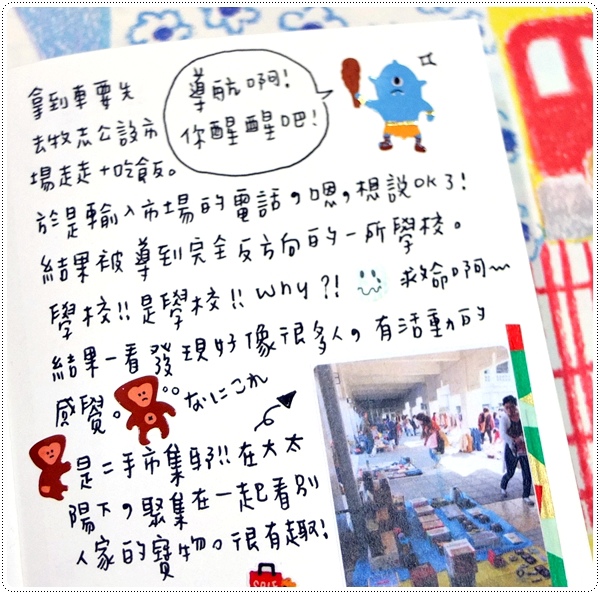 導航啊!
你醒醒吧!
拿到車要先
去牧志公設市
場走走+吃飯。
於是輸入市場的電話,嗯,想說OK了!
結果被導到完全反方向的一所學校。
學校!!是學校!!why?!救命啊~
結果一看發現好像很多人,有活動的
感覺。
なにこれ
是二手市集耶!!在大太
陽下,聚集在一起看別
人家的寶物。很有趣!
SALE